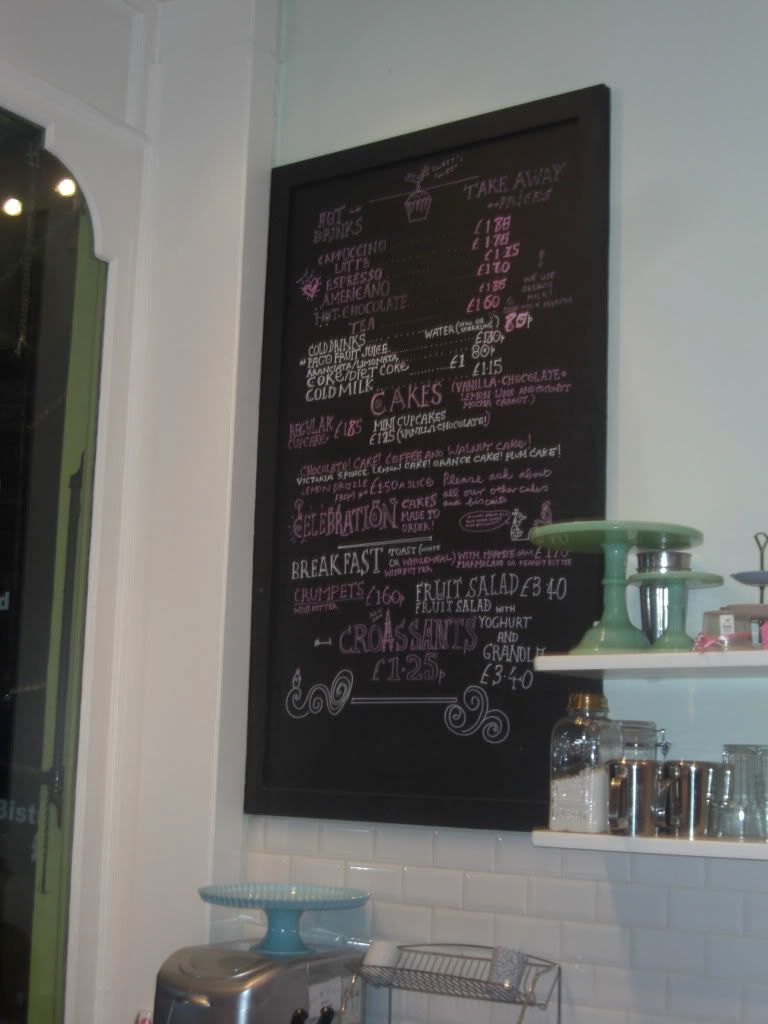 SWEET!
HOT DRINKS
TAKE AWAY PRICES
CAPPOCCINO
LATTE
ESPRESSO
AMERICANO
HOT CHOCOLATE
TEA
WE USE ORGANIC MILK!
COLD DRINKS WATER (STILL OR SPARKLING) 85p
PAGO FRUIT JUICE
ARANCIATA/LIMONATA
COKE/DIET COKE £1 80p
COLD MILK £1.15
CAKES (VANILLA·CHOCOLATE
LEMON LIME AND COCONUT
MOCHA CARROT)
REGULAR CUPCAKE £1.85
MINI CUPCAKES
£1.25 (VANILLA·CHOCOLATE!)
CHOCOLATE! CAKE! COFFEE AND WALNUT CAKE!
VICTORIA SPONGE. LEMON CAKE! ORANGE CAKE! PLUM CAKE!
LEMON DRIZZLE FROM £1.50 A SLICE
Please ask about all our other cakes and biscuits
CELEBRATION CAKES MADE TO ORDER!
BREAKFAST TOAST (WHITE OR WHOLEMEAL) WITH BUTTER
WITH MARMITE JAM
MARMALADE OR PEANUT BUTTER
CRUMPETS WITH BUTTER £1.60p
FRUIT SALAD £3.40
FRUIT SALAD WITH YOGHURT AND GRANOLA £3.40
CROASSANTS
£1.25p
Bist